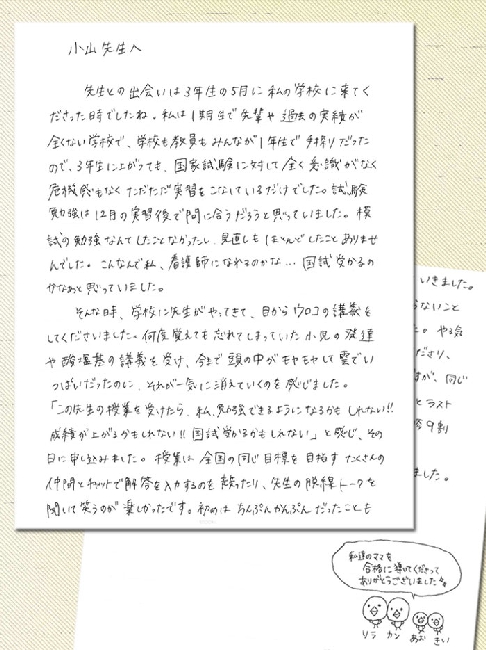 小山先生へ
先生との出会いは3年生の5月に私の学校に来てく
ださった時でしたね。私は1期生で先輩や過去の実績が
全くない学校で、学校も教員もみんなが1年生で手探りだった
ので、3年生に上がっても、国家試験に対して全く意識がなく
危機感もなくただただ実習をこなしているだけでした。試験
勉強は12月の実習後で間に合うだろうと思っていました。模
試の勉強なんてしたことなかったし、見直しもほとんどしたことありませ
んでした。こんなんで私、看護師になれるのかな…国試受かるの
かなぁと思っていました。
そんな時、学校に先生がやってきて、目からウロコの講義を
してくださいました。何度覚えても忘れてしまっていた小児の発達
や酸塩基の講義を受け、今まで頭の中がモヤモヤして雲でい
っぱいだったのに、それが一気に消えていくのを感じました。
「この先生の授業を受けたら、私、勉強できるようになるかもしれない!!
成績が上がるかもしれない!!国試受かるかもしれない」と感じ、その
日に申し込みました。授業は全国の同じ目標を目指すたくさんの
仲間とネットで解答を入力するのを競ったり、先生の脱線トークを
聞いて笑うのが楽しかったです。初めはちんぷんかんぷんだったことも
いきました。
ないこと
。やる
ださり、
すが、同じ
とラスト
9割
ました。
私達のママを
合格に導いてくださって
ありがとうございました
リラ カン あお きい